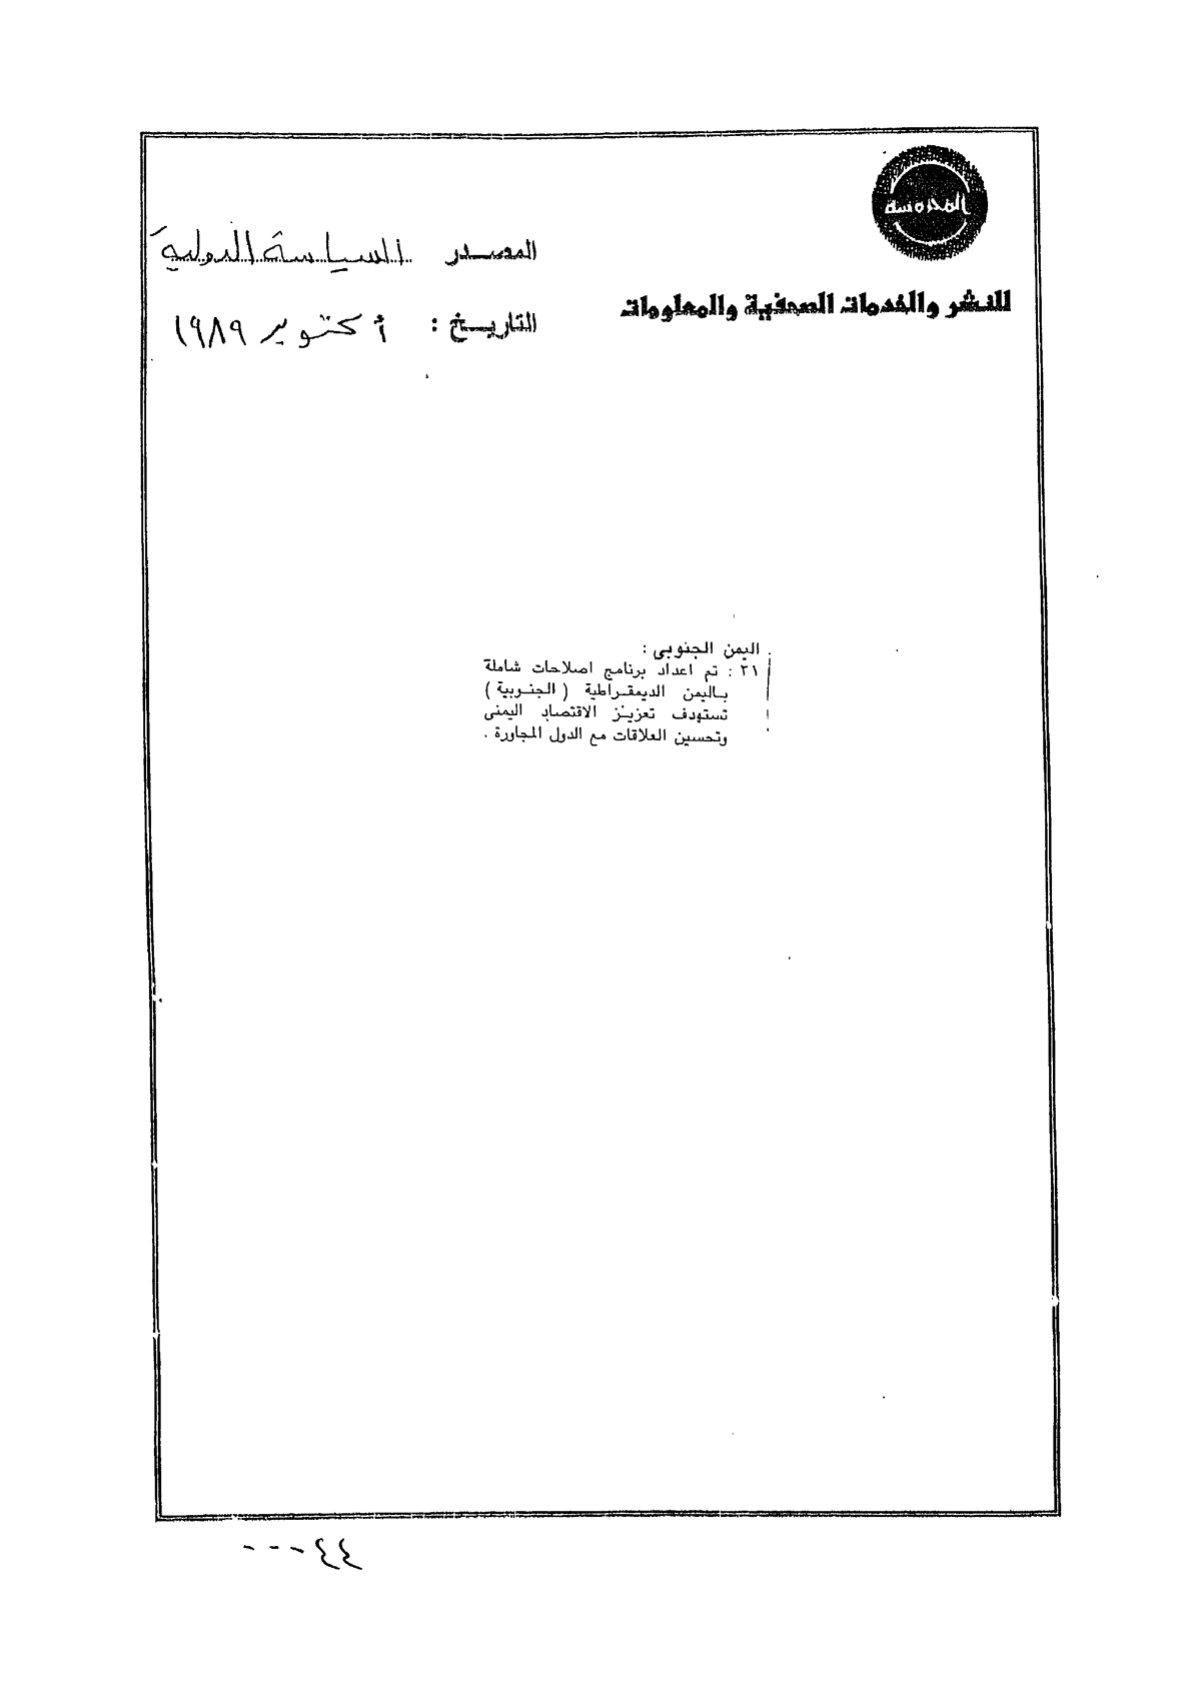 المحروسة
للنشر والخدمات الصحفية والمعلومات
المصدر السياسة الدولية
التاريخ : أكتوبر ١٩٨٩
اليمن الجنوبى :
٢١ : تم اعداد برنامج اصلاحات شاملة
باليمن الديمقراطية ( الجنوبية )
تستهدف تعزيز الاقتصاد اليمنى
وتحسين العلاقات مع الدول المجاورة .
٤٤---